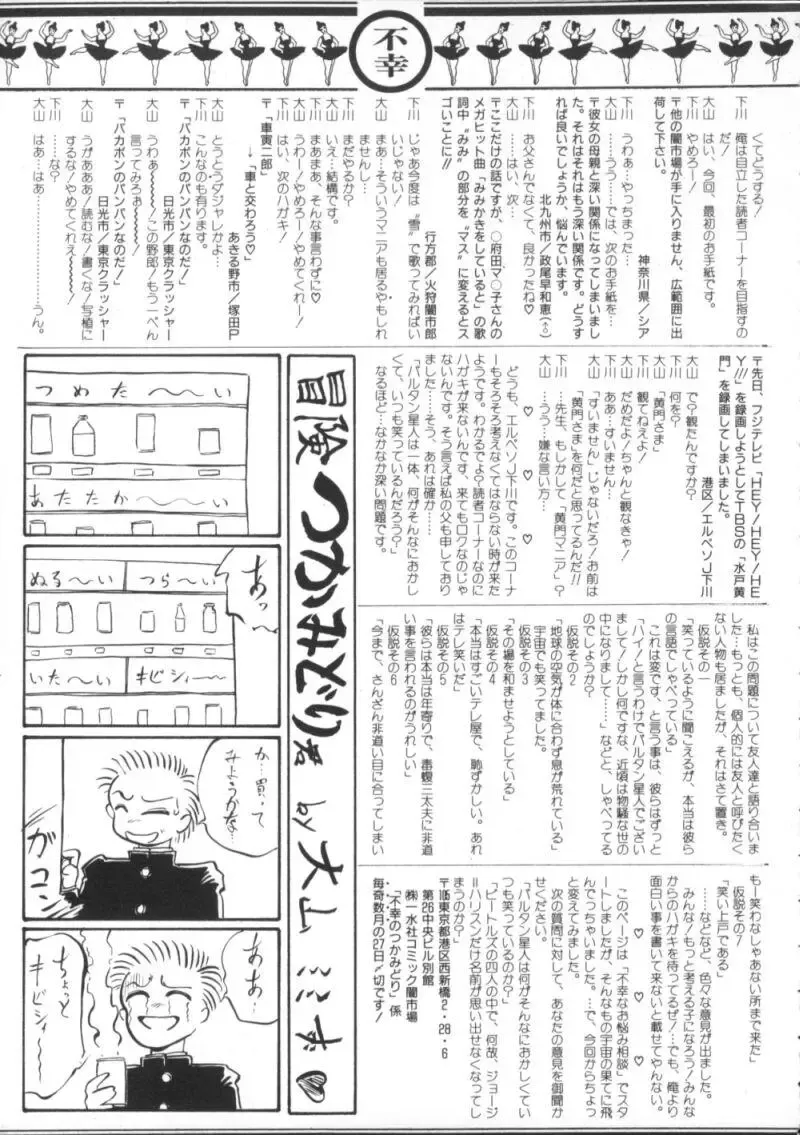 不幸
くてどうする!
下川　俺は自立した読者コーナーを目指すの
だ!
大山　はい、今回、最初のお手紙です。
下川　やめろー!
〒他の闇市場が手に入りません、広範囲に出
荷して下さい。
神奈川県/シア
下川　うわぁ…やっちまった…
大山　……うう……では、次のお手紙を…
〒彼女の母親と深い関係になってしまいまし
た。それはそれはもう深い関係です。どうす
れば良いでしょうか、悩んでいます。
北九州市/政尾早和恵(♂)
下川　お父さんでなくて、良かったね♡
大山　……はい、次…
〒ここだけの話ですが、○府田マ○子さんの
メガヒット曲「みみかきをしていると」の歌
詞中〝みみ〟の部分を〝マス〟に変えるとス
ゴイことに!!
行方郡/火狩闇市郎
下川　じゃあ今度は〝雪〟で歌ってみればい
いじゃない!
大山　ま…そういうマニアも居るやもしれ
ませんし…
下川　まだやるか?
大山　いえ…結構です。
下川　まあまあ、そんな事言わずに♡
大山　うわー!やめろー!やめてくれー!
下川　はい、次のハガキ!
〒「車寅二郎」
→「車と交わろう♡」
あきる野市/塚田P
大山　とうとうダジャレかよ…
下川　こんなのも有ります。
〒「バカボンのパンパンなのだ!」
日光市/東京クラッシャー
大山　うわぁ~~~~!この野郎!もう一ぺん
言ってみろぉ~~~~!
〒「バカボンのパンパンなのだ!」
日光市/東京クラッシャー
大山　うがあああ!読むな!書くな!写植に
するな!やめてくれぇ~~~!
下川　……な?
大山　はぁ…はぁ………………うん。
〒先日、フジテレビ「HEY!HEY!HE
Y!」を録画しようとしてTBSの「水戸黄
門」を録画してしまいました。
港区/エルペソJ下川
大山　で?観たんですか?
下川　何を?
大山　「黄門さま」
下川　観てねえよ!
大山　だめだよ!ちゃんと観なきゃ!
下川　ああ…すいません…
大山　「すいません」じゃないだろ!お前は
「黄門さま」を何だと思ってるんだ!!
下川　…先生、もしかして「黄門マニア」?
大山　…うう…嫌な言い方…
♡　♡　♡
どうも、エルペソJ下川です。このコーナ
ーもそろそろ考えなくてはならない時が来た
ようです。わかるでよ?読者コーナーなのに
ハガキが来ないんです、来てもロクなのじゃ
ないんです。そう言えば私の父も申しており
ました……そう、あれは確か……
「バルタン星人は一体、何がそんなにおかし
くて、いつも笑っているんだろう?」
なるほど…なかなか深い問題です。
私はこの問題について友人達と語り合いま
した…もっとも、個人的には友人と呼びたく
ない人物も居ましたが、それはさて置き。
仮説その一
「笑っているように聞こえるが、本当は彼ら
の言語でしゃべっている」
これは変です、と言う事は、彼らはずっと
「ハイ!と言うわけでバルタン星人でござい
まして!しかし何ですな、近頃は物騒な世の
中になりまして……」などと、しゃべってる
のでしょうか?
仮説その2
「地球の空気が体に合わず息が荒れている」
宇宙でも笑ってました。
仮説その3
「その場を和ませようとしている」
仮説その4
「本当はすごいテレ屋で、恥ずかしい。あれ
はテレ笑いだ」
仮説その5
「彼らは本当は年寄りで、毒蝮三太夫に非道
い事を言われるのがうれしい」
仮説その6
「今まで、さんざん非道い目に合ってしまい
もー笑わなしゃあない所まで来た」
仮説その7
「笑い上戸である」
……などなど、色々な意見が出ました。
みんな!もっと考える子になろう!みんな
からのハガキを待ってるぜ!…でも、俺より
面白い事を書いて来ないと載せてやんない。
♡　♡　♡
このページは「不幸なお悩み相談」でスタ
ートしましたが、そんなもの宇宙の果てに飛
んでっちゃいました。…で、今回からちょっ
と変えてみました。
次の質問に対して、あなたの意見を御聞か
せください。
「バルタン星人は何がそんなにおかしくてい
つも笑っているのか?」
「ビートルズの四人の中で、何故、ジョージ
=ハリスンだけ名前が思い出せなくなってし
まうのか?」
〒105東京都港区西新橋2・28・6
第26中央ビル別館
㈱一水社コミック闇市場
「不幸のつかみどり」係
毎奇数月の27日〆切です!
冒険つかみどり君 by 大山ミミず♡
つめた~~い
あたたか~~い
ぬる~い
つら~い
いた~い
キビシィー
あっ~
か…買って
みようかな…
ガコン
ああ…
ちょっと
キビシィー